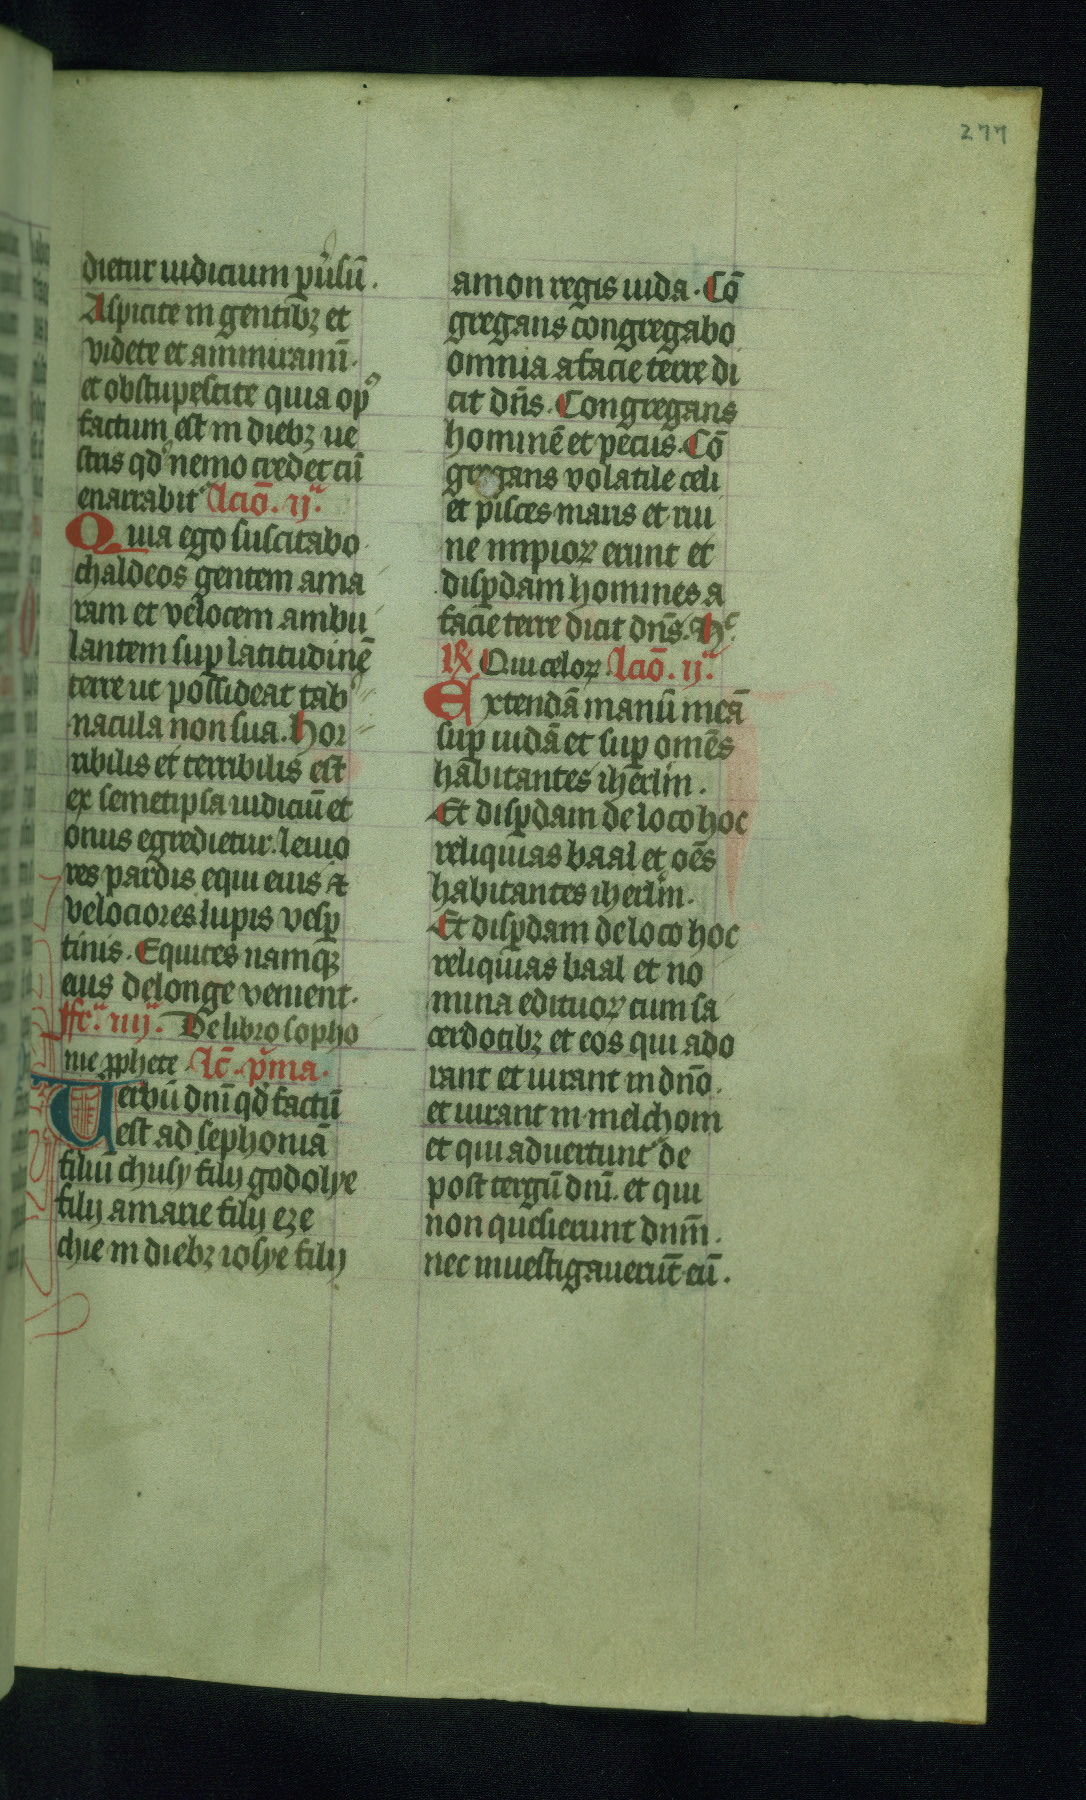 277
dietur iudicium p̱ūsū.
Aspicite in gentibꝫ et
videte et ammiramī·
et obstupescite quia opꝰ
factum est in diebꝫ ue
stris qd̄ nemo credet cū
enarrabit᷑ Lctō. ij.ª
Quia ego suscitabo
chaldeos gentem ama
ram et velocem ambu
lantem suꝑ latitudinē
terre ut possideat tab᷑
nacula non sua. Hor
ribilis et terribilis est
ex semetipsa iudiciū et
onus egredietur. leuio
res pardis equi eius et
velociores lupis vesꝑ
tinis. Equites namqꝫ
eius delonge venient.
ffr.ª iiij.ª De libro sopho
nie ꝓphete. Lc̄. pͥma.
Verbū dnī qd̄ factū
est ad sephoniā
filiū chusy filij godolye
filij amarie filij eze
chie in diebꝫ iosye filij
amon regis iuda. Cō
gregans congregabo
omnia a facie terre di
cit dn̄s. Congregans
hominē et pecus. Cō
gregans volatile celi
et pisces maris et rui
ne impioꝝ erunt et
disꝑdam homines a
facie terre dicit dn̄s. Hͨ.
℟ Qui celoꝝ Lctō. ij.ª
Extendā manū meā
suꝑ iudā et suꝑ omēs
habitantes iherl̄m.
Et disꝑdam de loco hoc
reliquias baal et oēs
habitantes iherl̄m.
Et disꝑdam de loco hoc
reliquias baal et no
mina edituoꝝ cum sa
cerdotibꝫ et eos qui ado
rant et iurant in dn̄o.
et iurant in melchom
et qui aduertunt᷑ de
post tergū dnī. et qui
non quesierunt dnm̄.
nec inuestigauerūt eū.